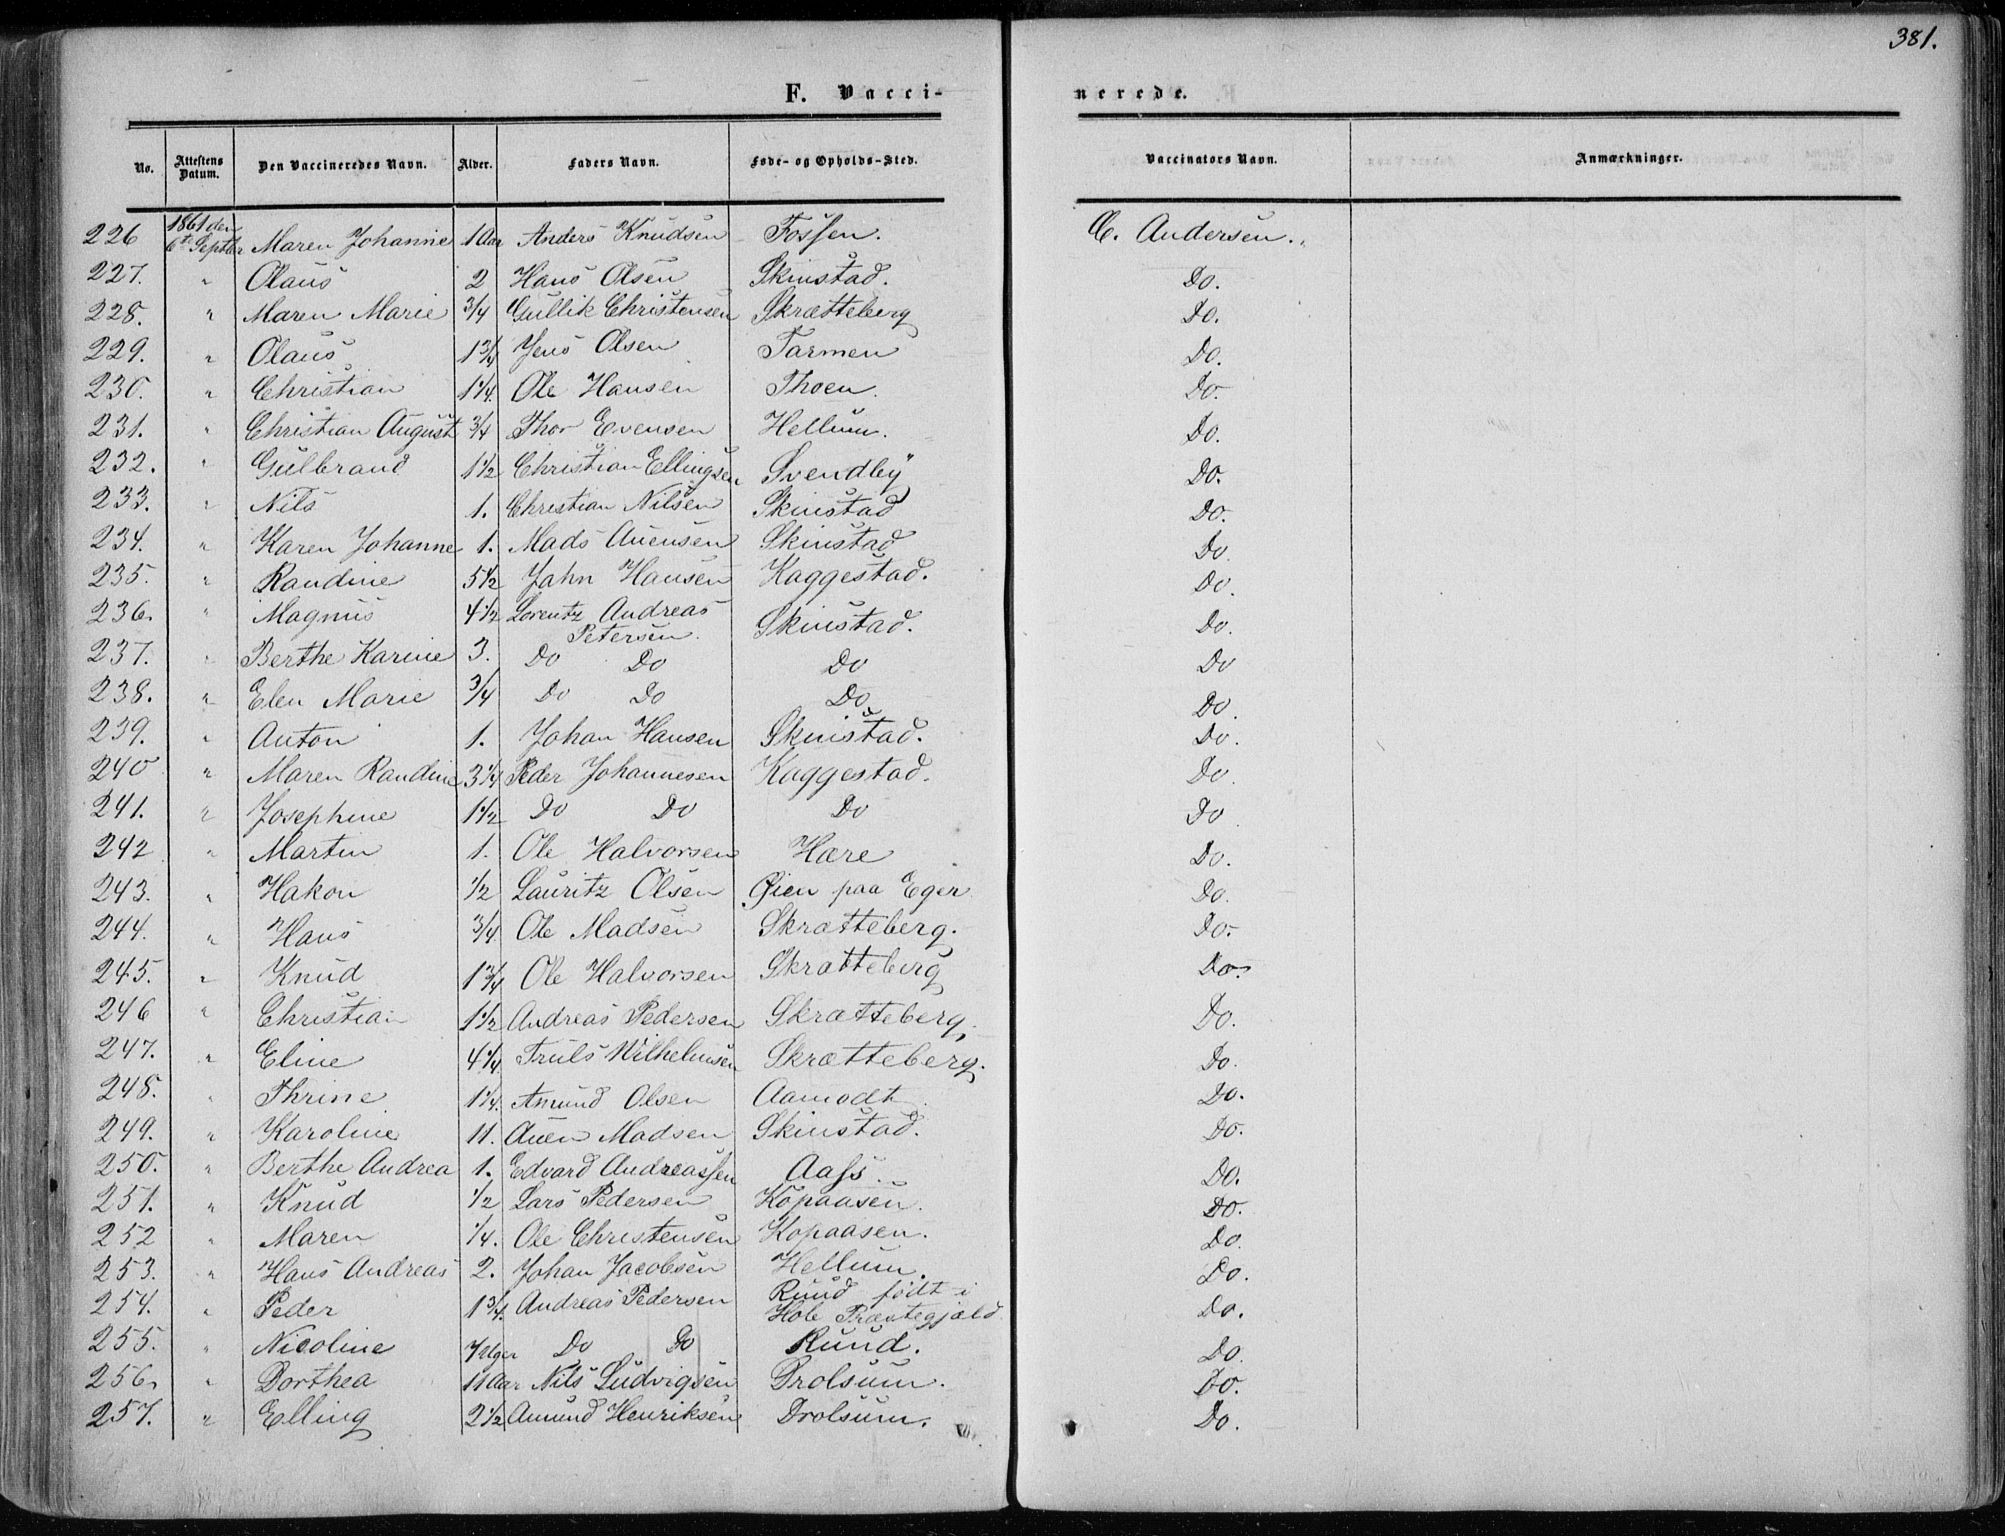 381.
F. Vacci-nerede.
No. Attestens Datum. Den Vaccineredes Navn. Alder. Faders Navn. Føde- og Opholds-Sted. Vaccinators Navn. Anmærkninger.
226 1861 den 6te Septbr Maren Johanne 1 Aar Anders Knudsen Fossen. C. Andersen.
227. " Olaus 2 Hans Olsen Skinstad. Do.
228. " Maren Marie 3/4 Gullik Christensen Skrætteberg Do.
229. " Olaus 1 3/4 Jens Olsen Tarmen Do.
230. " Christian 1 1/4. Ole Hansen Thoen. Do.
231. " Christian August 3/4 Thor Evensen Hellum. Do.
232. " Gulbrand 1 1/2 Christian Ellingsen Svendby Do.
233. " Nils 1. Christian Nilsen Skinstad Do.
234. " Karen Johanne 1. Mads Auensen Skinstad Do
235. " Randine 5 1/2 Jahn Hansen Kaggestad. Do.
236. " Magnus 4 1/2 Lorentz Andreas Petersen. Skinstad. Do.
237. " Berthe Karine 3. Do Do Do Do
238. " Elen Marie 3/4 Do Do Do Do.
239. " Anton 1. Johan Hansen Skinstad. Do.
240 " Maren Randine 3 1/4 Peder Johannesen Kaggestad. Do.
241. " Josephine 1 1/2 Do Do Do Do
242 " Martin 1. Ole Halvorsen Hære Do.
243. " Hakon 1/2 Lauritz Olsen Øien paa Eger. Do.
244. " Hans 3/4 Ole Madsen Skrætteberg. Do.
245. " Knud 1 3/4 Ole Halvorsen Skrætteberg Do.
246 " Christian 1 1/2 Andreas Pedersen Skrætteberg. Do.
247. " Eline 4 1/4 Truls Wilhelmsen Skrætteberg. Do.
248. " Thrine 1 1/4. Amund Olsen Aamodt. Do.
249. " Karoline 11. Auen Madsen Skinstad. Do.
250. " Berthe Andrea 1. Edvard Andreassen Aass. Do.
251. " Knud 1/2 Lars Pedersen Kopaasen. Do.
252 " Maren 1/4. Ole Christensen Kopaasen. Do.
253. " Hans Andreas 2. Johan Jacobsen Hellum. Do.
254. " Peder 1 3/4. Andreas Pedersen Ruud født i Hole Præstegjæld Do.
255. " Nicoline 7 Uger Do Do Ruud. Do.
256. " Dorthea 11 Aar Nils Ludvigsen Drolsum. Do.
257. " Elling 2 1/2 Amund Henriksen Drolsum. Do.